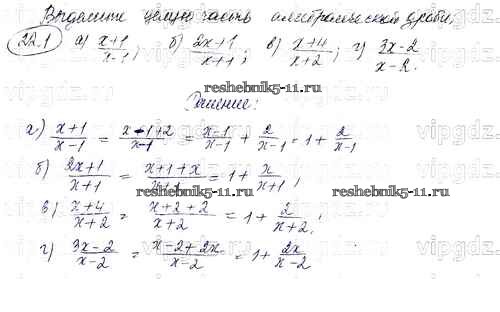 Выделите целую часть алгебраической дроби.
22.1 а) (x+1)/(x-1); б) (2x+1)/(x+1); в) (x+4)/(x+2); г) (3x-2)/(x-2).
reshebnik5-11.ru
Решение:
а) (x+1)/(x-1) = (x-1+2)/(x-1) = (x-1)/(x-1) + 2/(x-1) = 1 + 2/(x-1)
б) (2x+1)/(x+1) = (x+1+x)/(x+1) = 1 + x/(x+1);
reshebnik5-11.ru
в) (x+4)/(x+2) = (x+2+2)/(x+2) = 1 + 2/(x+2);
г) (3x-2)/(x-2) = (x-2+2x)/(x-2) = 1 + 2x/(x-2)
vipgdz.ru